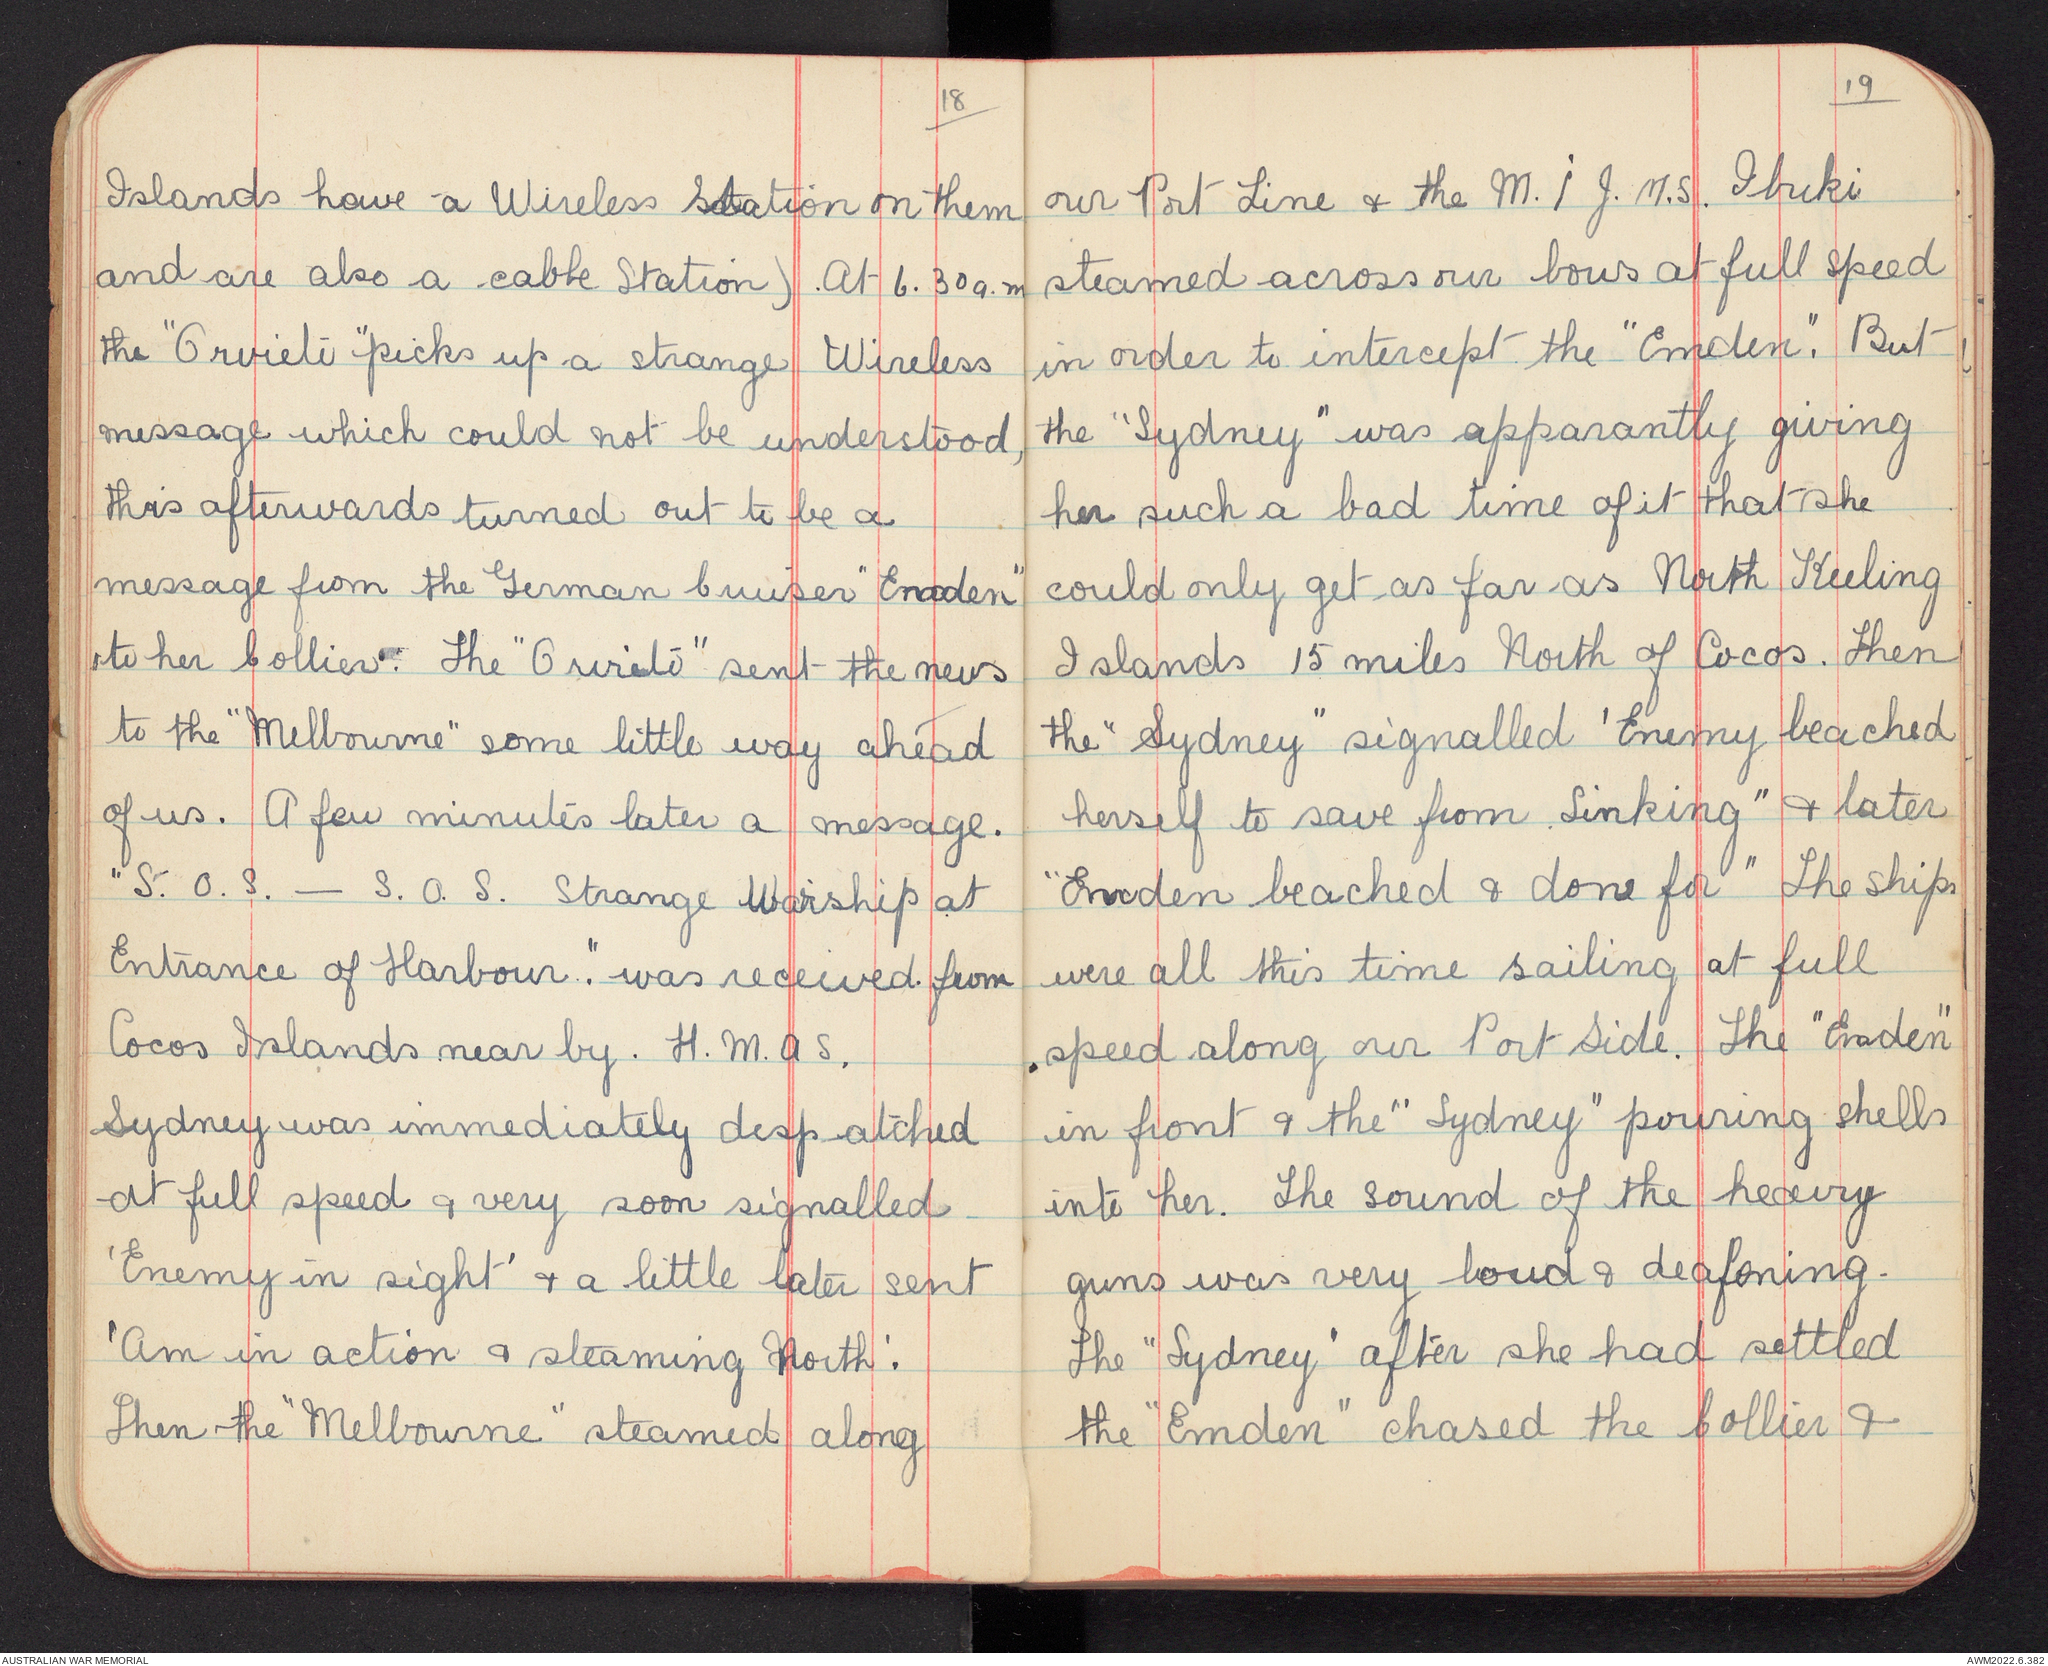 18
Islands have a Wireless Station on them
and are also a cable Station). At 6.30 a.m
the "Orvieto" picks up a strange Wireless
message which could not be understood,
this afterwards turned out to be a
message from the German Cruiser "Emden"
to her Collier. The "Orvieto" sent the news
to the "Melbourne" some little way ahead
of us. A few minutes later a message.
"S.O.S. — S.O.S. Strange Warship at
Entrance of Harbour." was received from
Cocos Islands near by. H.M.A S.
Sydney was immediately despatched
at full speed & very soon signalled
'Enemy in sight' & a little later sent
'Am in action & steaming North'.
Then the "Melbourne" steamed along
19
our Port Line & the M. I J. M.S. Ibuki
steamed across our bows at full speed
in order to intercept the "Emden". But
the "Sydney" was apparantly giving
her such a bad time of it that she
could only get as far as North Keeling
Islands 15 miles North of Cocos. Then
the "Sydney" signalled 'Enemy beached
herself to save from Sinking" & later
"Emden beached & done for" The ships
were all this time sailing at full
speed along our Port Side. The "Emden"
in front & the "Sydney" pouring shells
into her. The sound of the heavy
guns was very loud & deafening.
The "Sydney' after she had settled
the "Emden" chased the Collier &
AUSTRALIAN WAR MEMORIAL
AWM2022.6.382